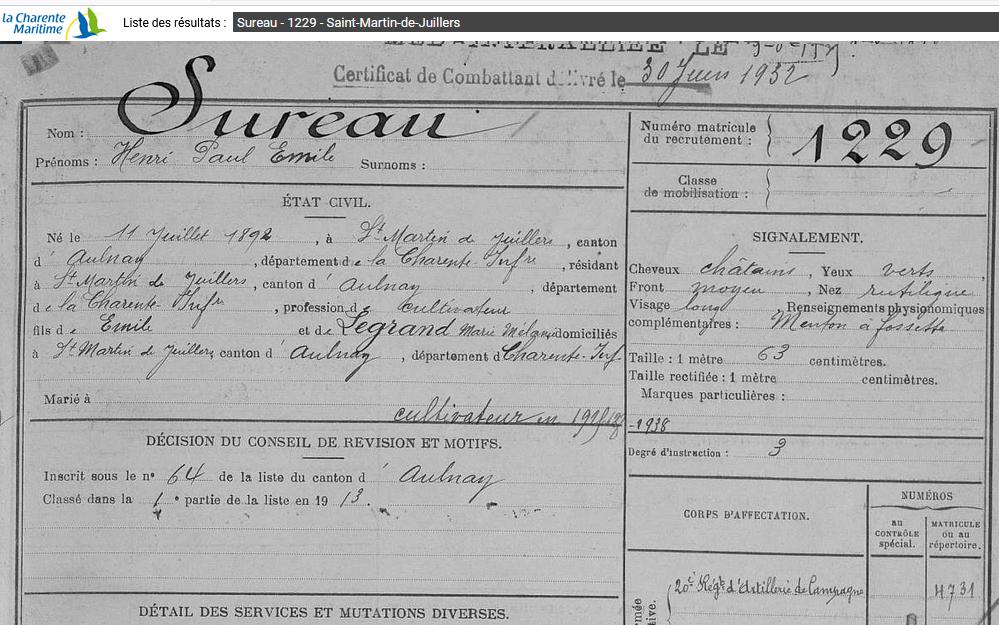 la Charente Maritime
Liste des résultats : Sureau - 1229 - Saint-Martin-de-Juillers
Certificat de Combattant délivré le 30 Juin 1932
Nom : Sureau
Prénoms : Henri Paul Emile Surnoms :
Numéro matricule du recrutement : 1229
Classe de mobilisation :
ÉTAT CIVIL.
Né le 11 Juillet 1892, à St Martin de Juillers, canton
d'Aulnay, département de la Charente-Infre, résidant
à St Martin de Juillers, canton d'Aulnay, département
de la Charente-Infre, profession de cultivateur
fils de Emile et de Legrand Marie domiciliés
à St Martin de Juillers canton d'Aulnay, département d Charente-Inf
Marié à
cultivateur en
-1938
SIGNALEMENT.
Cheveux châtains, Yeux verts
Front moyen, Nez rectiligne
Visage long Renseignements physionomiques
complémentaires : Menton à fossette
Taille : 1 mètre 63 centimètres.
Taille rectifiée : 1 mètre centimètres.
Marques particulières :
Degré d'instruction : 3
DÉCISION DU CONSEIL DE REVISION ET MOTIFS.
Inscrit sous le nº 64 de la liste du canton d'Aulnay
Classé dans la 1e partie de la liste en 1913.
CORPS D'AFFECTATION.
NUMÉROS
au CONTRÔLE spécial.
MATRICULE ou au répertoire.
20e Régt d'Artillerie de Campagne
4731
DÉTAIL DES SERVICES ET MUTATIONS DIVERSES.